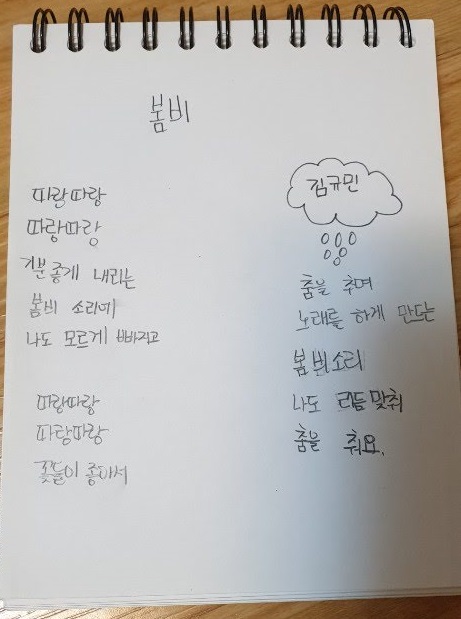 봄비
김규민
따랑따랑
따랑따랑
기분 좋게 내리는
봄비 소리에
나도 모르게 빠지고
따랑따랑
따랑따랑
꽃들이 좋아서
춤을 추며
노래를 하게 만드는
봄비소리
나도 리듬맞춰
춤을 춰요.